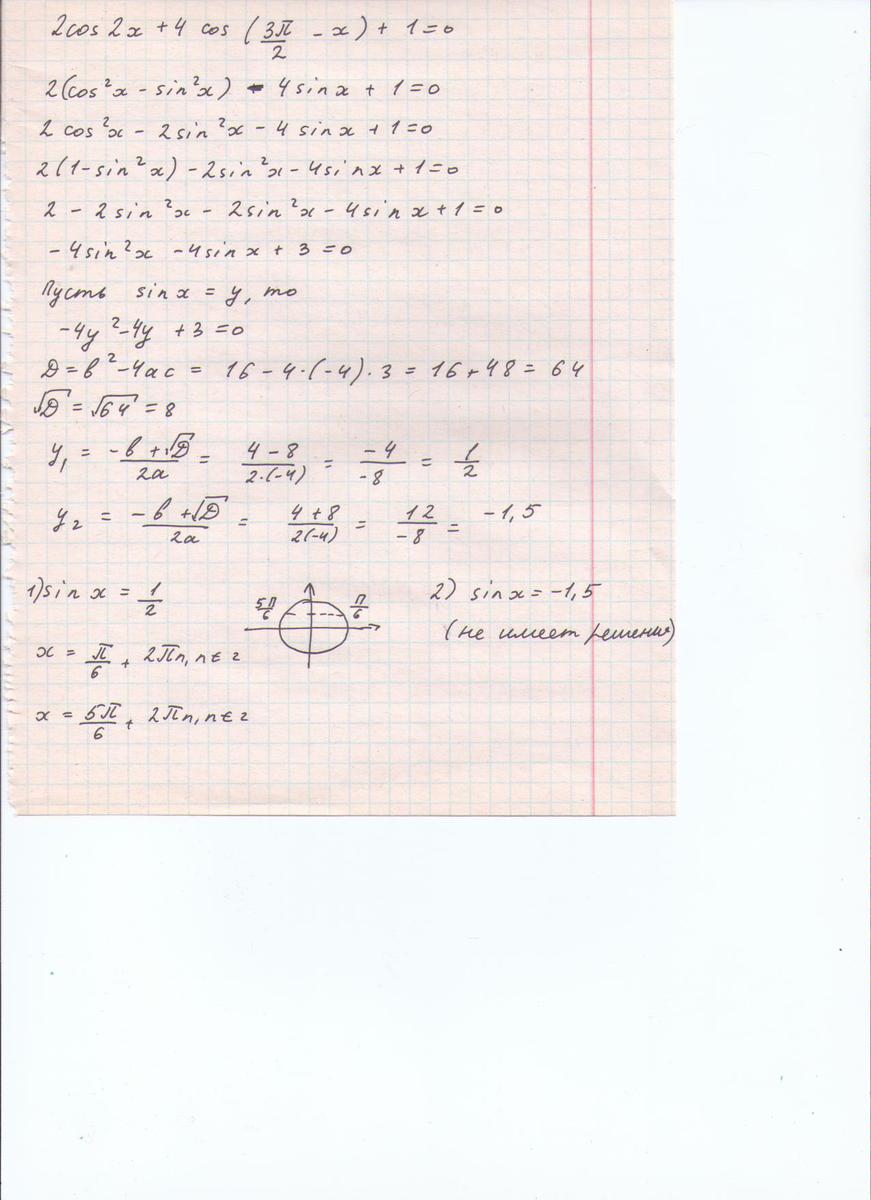 2cos 2x + 4 cos (3π/2 - x) + 1 = 0
2(cos²x - sin²x) - 4 sin x + 1 = 0
2 cos²x - 2 sin²x - 4 sin x + 1 = 0
2(1 - sin²x) - 2sin²x - 4sin x + 1 = 0
2 - 2 sin²x - 2sin²x - 4 sin x + 1 = 0
- 4 sin²x - 4 sin x + 3 = 0
Пусть sin x = y, то
-4y² - 4y + 3 = 0
D = b² - 4ac = 16 - 4·(-4)·3 = 16 + 48 = 64
√D = √64 = 8
y₁ = (-b + √D)/2a = (4 - 8)/(2·(-4)) = -4/-8 = 1/2
y₂ = (-b + √D)/2a = (4 + 8)/(2(-4)) = 12/-8 = -1,5
1) sin x = 1/2 5π/6 π/6 2) sin x = -1,5
(не имеет решения)
x = π/6 + 2πn, n ∈ z
x = 5π/6 + 2πn, n ∈ z